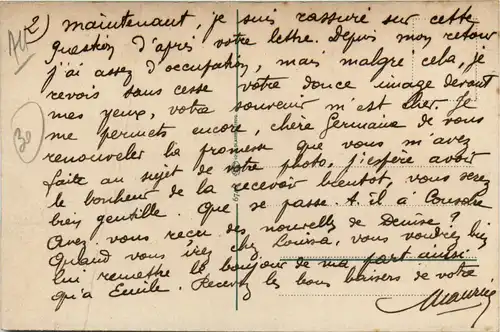 2) maintenant, je suis rassuré sur cette
question d'après votre lettre. Depuis mon retour
j'ai assez d'occupation, mais malgré cela, je
revois sans cesse votre douce image devant
mes yeux, votre souvenir m'est cher. Je
me permets encore, chère Germaine de vous
renouveler la promesse que vous m'avez
faite au sujet de votre photo, j'espère avoir
le bonheur de la recevoir bientot, vous serez
bien gentille. Que se passe-t-il à Cousolre
Avez vous reçu des nouvelles de Denise?
Quand vous irez chez Louisa, vous voudrez bien
lui remettre le bonjour de ma part ainsi
qu'à Emile. Recevez les bons baisers de votre
Maurice
30